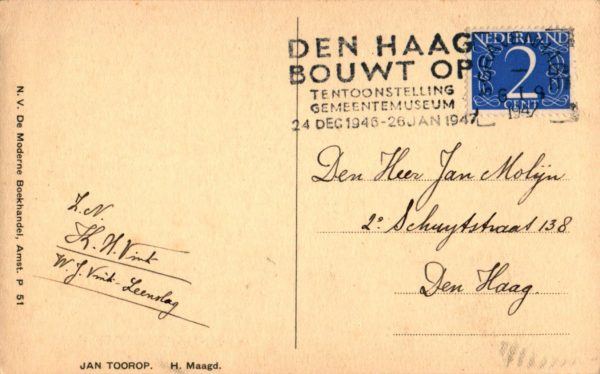 DEN HAAG
BOUWT OP
TENTOONSTELLING
GEMEENTEMUSEUM
24 DEC 1946-26 JAN 1947
NEDERLAND
2
CENT
1947
Den Heer Jan Molijn
2e Schuytstraat 138
Den Haag.
Z.N.
Th. H. Vink
W. J. Vink-Leenslag
N. V. De Moderne Boekhandel, Amst. P 51
JAN TOOROP. H. Maagd.